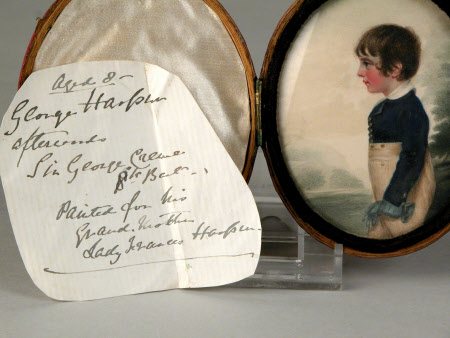 Aged 8 -
George Harpur
afterwards
Sir George Crewe
8th Bart -
Painted for his
Grand-Mother
Lady Frances Harpur -